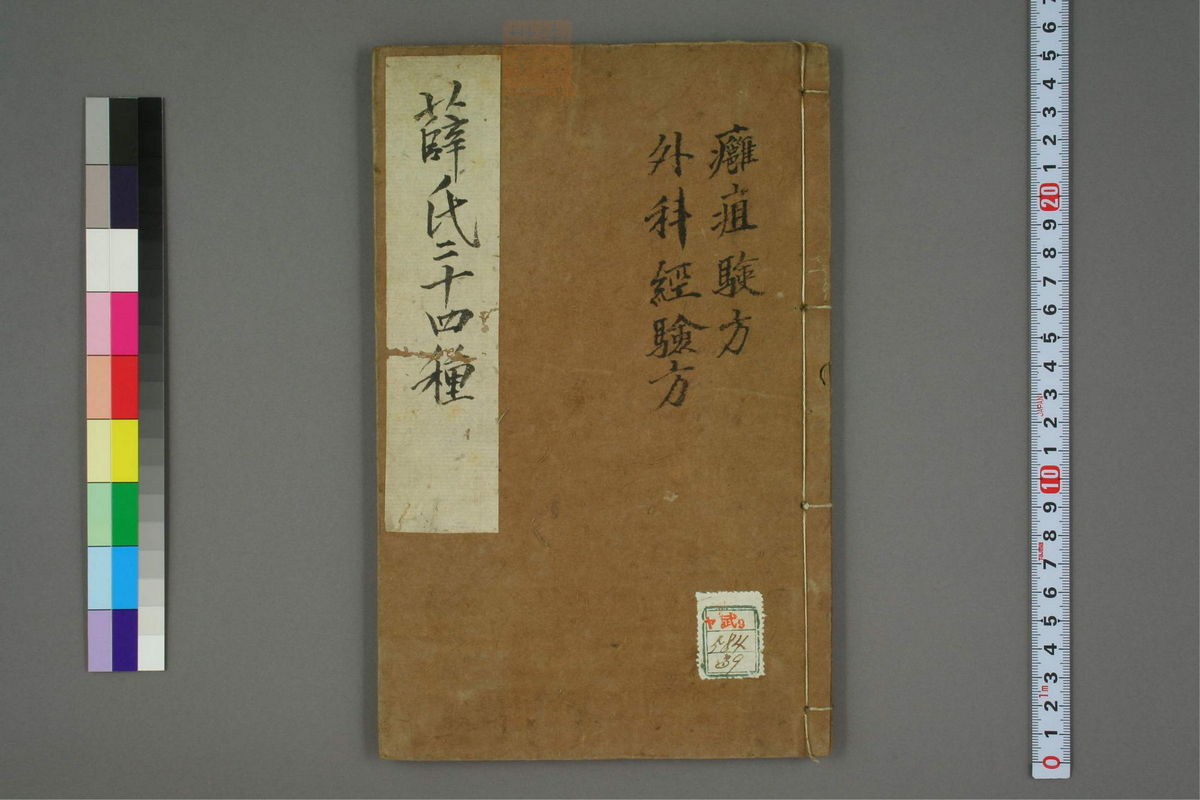 癰疽驗方
外科經驗方
薛氏二十四種
ヤ 武9
584
39
7
6
5
4
3
2
1
20
9
8
7
6
5
4
3
2
JAPAN
1
10
9
8
7
6
5
4
3
1m
2
1
0